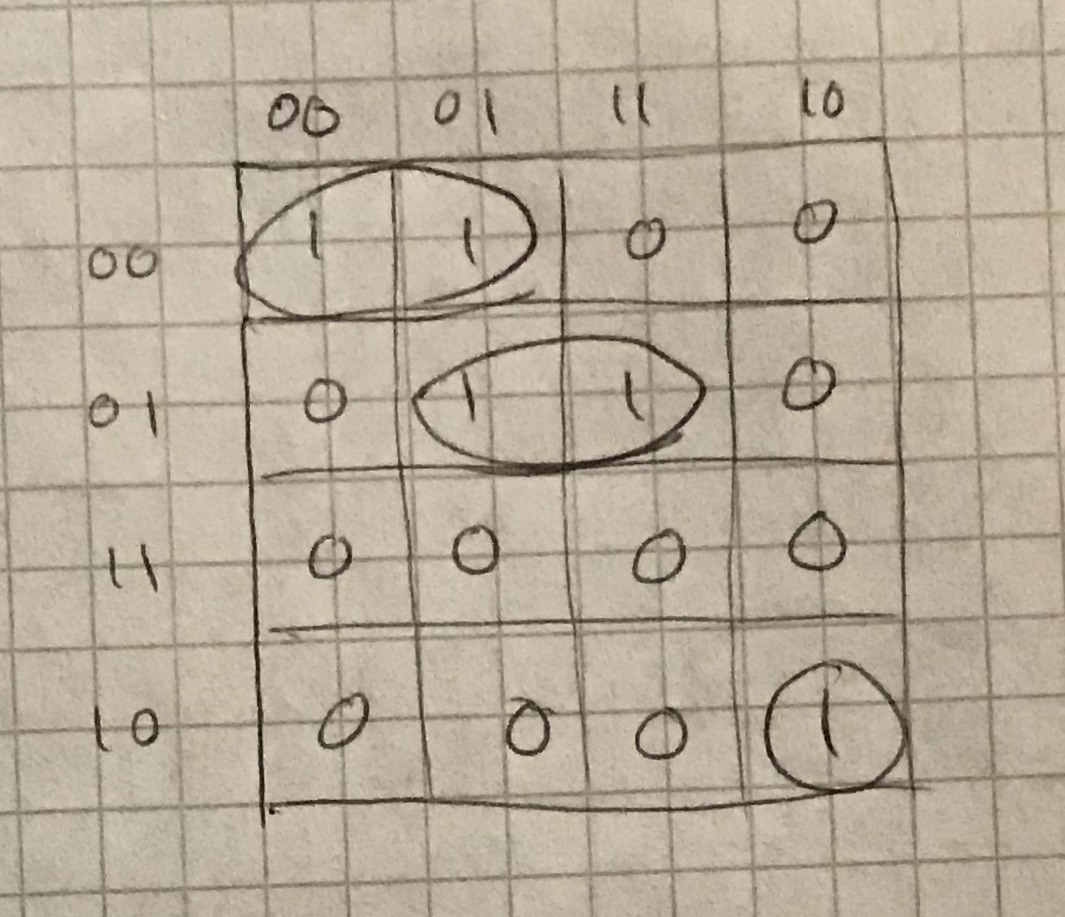 00 01 11 10
00 1 1 0 0
01 0 1 1 0
11 0 0 0 0
10 0 0 0 1